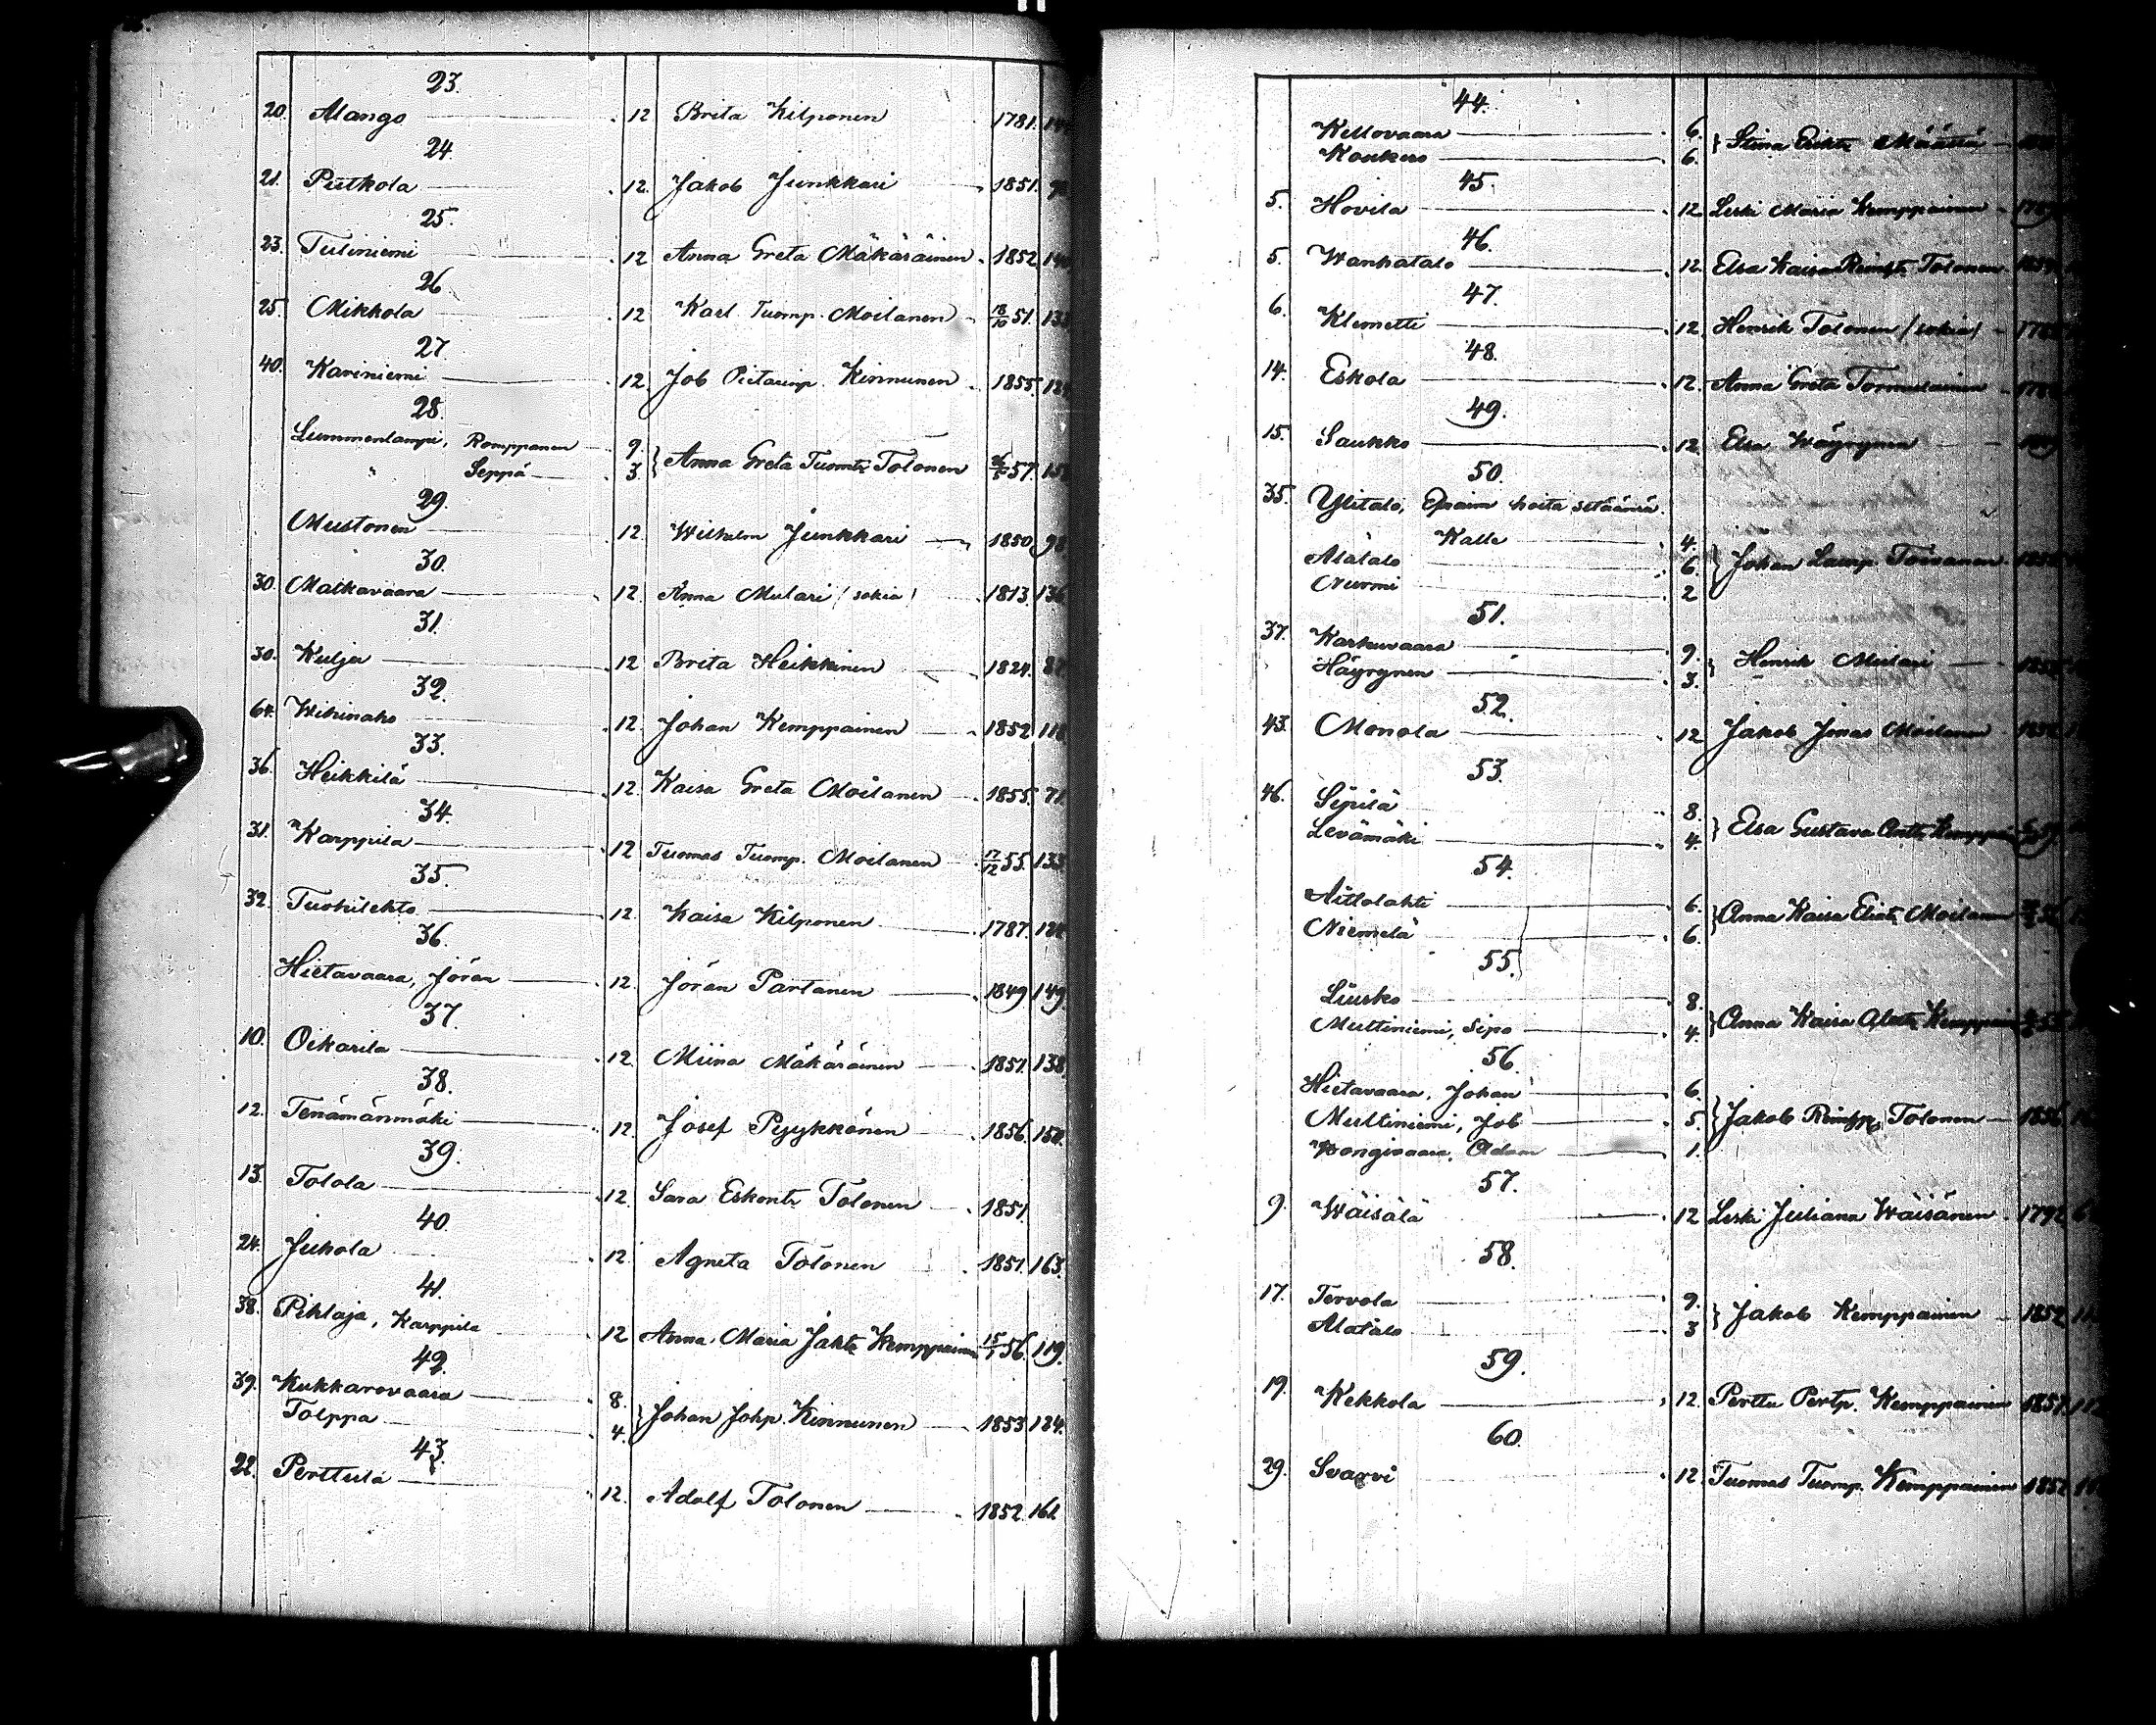 23.
20. Alango 12 Brita Kilponen 1781.
24.
21. Putkola 12. Jakob Junkkari 1851.
25.
23. Tuliniemi 12 Anna Greta Mäkäräinen 1852
26
25. Mikkola 12 Karl Tuomp. Moilanen 18/10 51.
27.
40. Kariniemi 12. Job Pietarinp. Kinnunen 1855.
28.
Lummenlampi, Romppanen 9.
" Seppä 3. } Anna Greta Tuomt. Tolonen 57.
29.
Mustonen 12. Wilhelm Junkkari 1850 98.
30.
30. Matkavaara 12. Anna Mulari (sokia) 1813. 136
31.
30. Kulju 12 Brita Heikkinen 1824.
32.
64. Wihinaho 12. Johan Kemppainen 1852
33.
36. Heikkilä 12. Kaisa Greta Moilanen 1855. 71.
34.
31. Karppila 12 Tuomas Tuomp. Moilanen 17/12 55. 133
35.
32. Tuohilehto 12. Kaisa Kilponen 1787.
36.
Hietavaara, Jöran 12. Jöran Partanen 1849 149.
37.
10. Oikarila 12. Miina Mäkäräinen 1851. 138.
38.
12. Tenämänmäki 12. Josef Pyykkönen 1856. 150.
39.
13. Tolola 12. Sara Eskont. Tolonen 1851.
40.
24. Jukola 12. Agneta Tolonen 1851. 163.
41.
38. Pihlaja, Karppila 12 Anna Maria Jakt. Kemppainen 15/1 56. 119.
42.
39. Kukkarovaara 8.
Tolppa 4. } Johan Johp. Kinnunen 1853 124.
43.
22. Perttula 12. Adolf Tolonen 1852. 161.
44.
Kellovaara 6.
Koukero 6. } Stina Erikt. Määttä
45.
5. Hovila 12. Leski Maria Kemppainen
46.
5. Wanhatalo 12. Elsa Kaisa Tolonen
47.
6. Klemetti 12. Henrik Tolonen (sokia)
48.
14. Eskola 12. Anna Greta
49.
15. Saukko 12. Elsa Wäyrynen
50.
35. Ylitalo, Epraim hoita setäänsä.
Kalle 4.
Alatalo 6. } Johan Toivanen
Nurmi 2
51.
37. Karhuvaara 9.
Häyrynen 3. } Henrik Mulari
52.
43. Monola 12 Jakob Jonas Moilanen
53.
46. Sipilä 8.
Levämäki 4. } Elsa Gustava Antt. Kemppainen
54.
Aittolahti 6.
Niemelä 6. } Anna Kaisa Eliat. Moilanen
55.
Liusko 8.
Multiniemi, Sipo 4. } Anna Kaisa Kemppainen
56.
Hietavaara, Johan 6.
Multiniemi, Job 5. } Jakob Tolonen 1856.
Kongivaara, Adam 1.
57.
9. Wäisälä 12 Leski Juliana Wäisänen 1792
58.
17. Tervola 9.
Alatalo 3 } Jakob Kemppainen 1852
59.
19. Kekkola 12. Perttu Pertp. Kemppainen 1851.
60.
29. Svarvi 12. Tuomas Tuomp. Kemppainen 1852